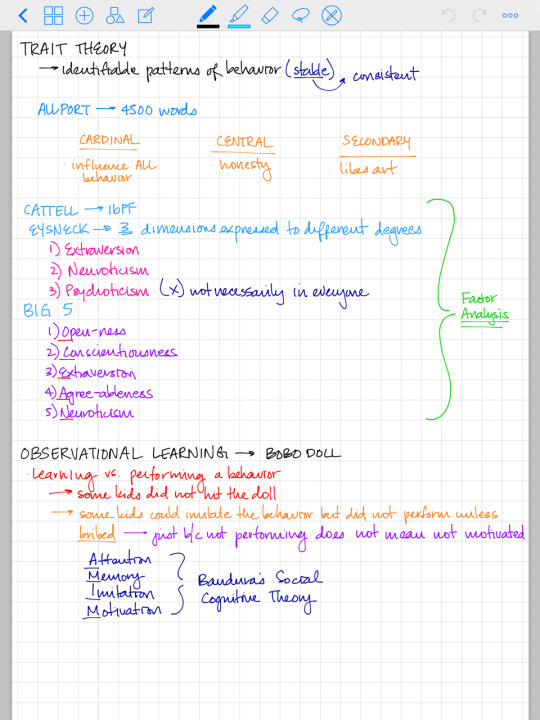 TRAIT THEORY
→ identifiable patterns of behavior (stable) → consistent
ALLPORT → 4500 words
CARDINAL CENTRAL SECONDARY
· influence ALL behavior · honesty · likes art
CATTELL → 16PF
EYSNECK → 3 dimensions expressed to different degrees
1) Extraversion
2) Neuroticism
3) Psychoticism (X) not necessarily in everyone
BIG 5
1) Open-ness
2) Conscientiousness
3) Extraversion
4) Agree-ableness
5) Neuroticism
Factor
Analysis
OBSERVATIONAL LEARNING → BOBO DOLL
· Learning vs. performing a behavior
→ some kids did not hit the doll
→ some kids could imitate the behavior but did not perform unless
bribed → just b/c not performing does not mean not motivated
Attention
Memory
Imitation
Motivation
Bandura's Social
Cognitive Theory